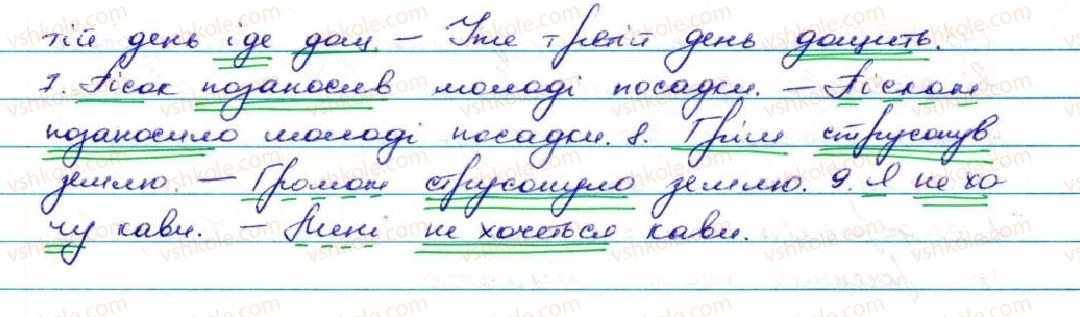 тій день іде дощ. – Уже третій день дощить.
7. Пісок позаносив молоді посадки. – Піском
позаносило молоді посадки. 8. Грім струсонув
землю. – Громом струсонуло землю. 9. Я не хо
чу кави. – Мені не хочеться кави.